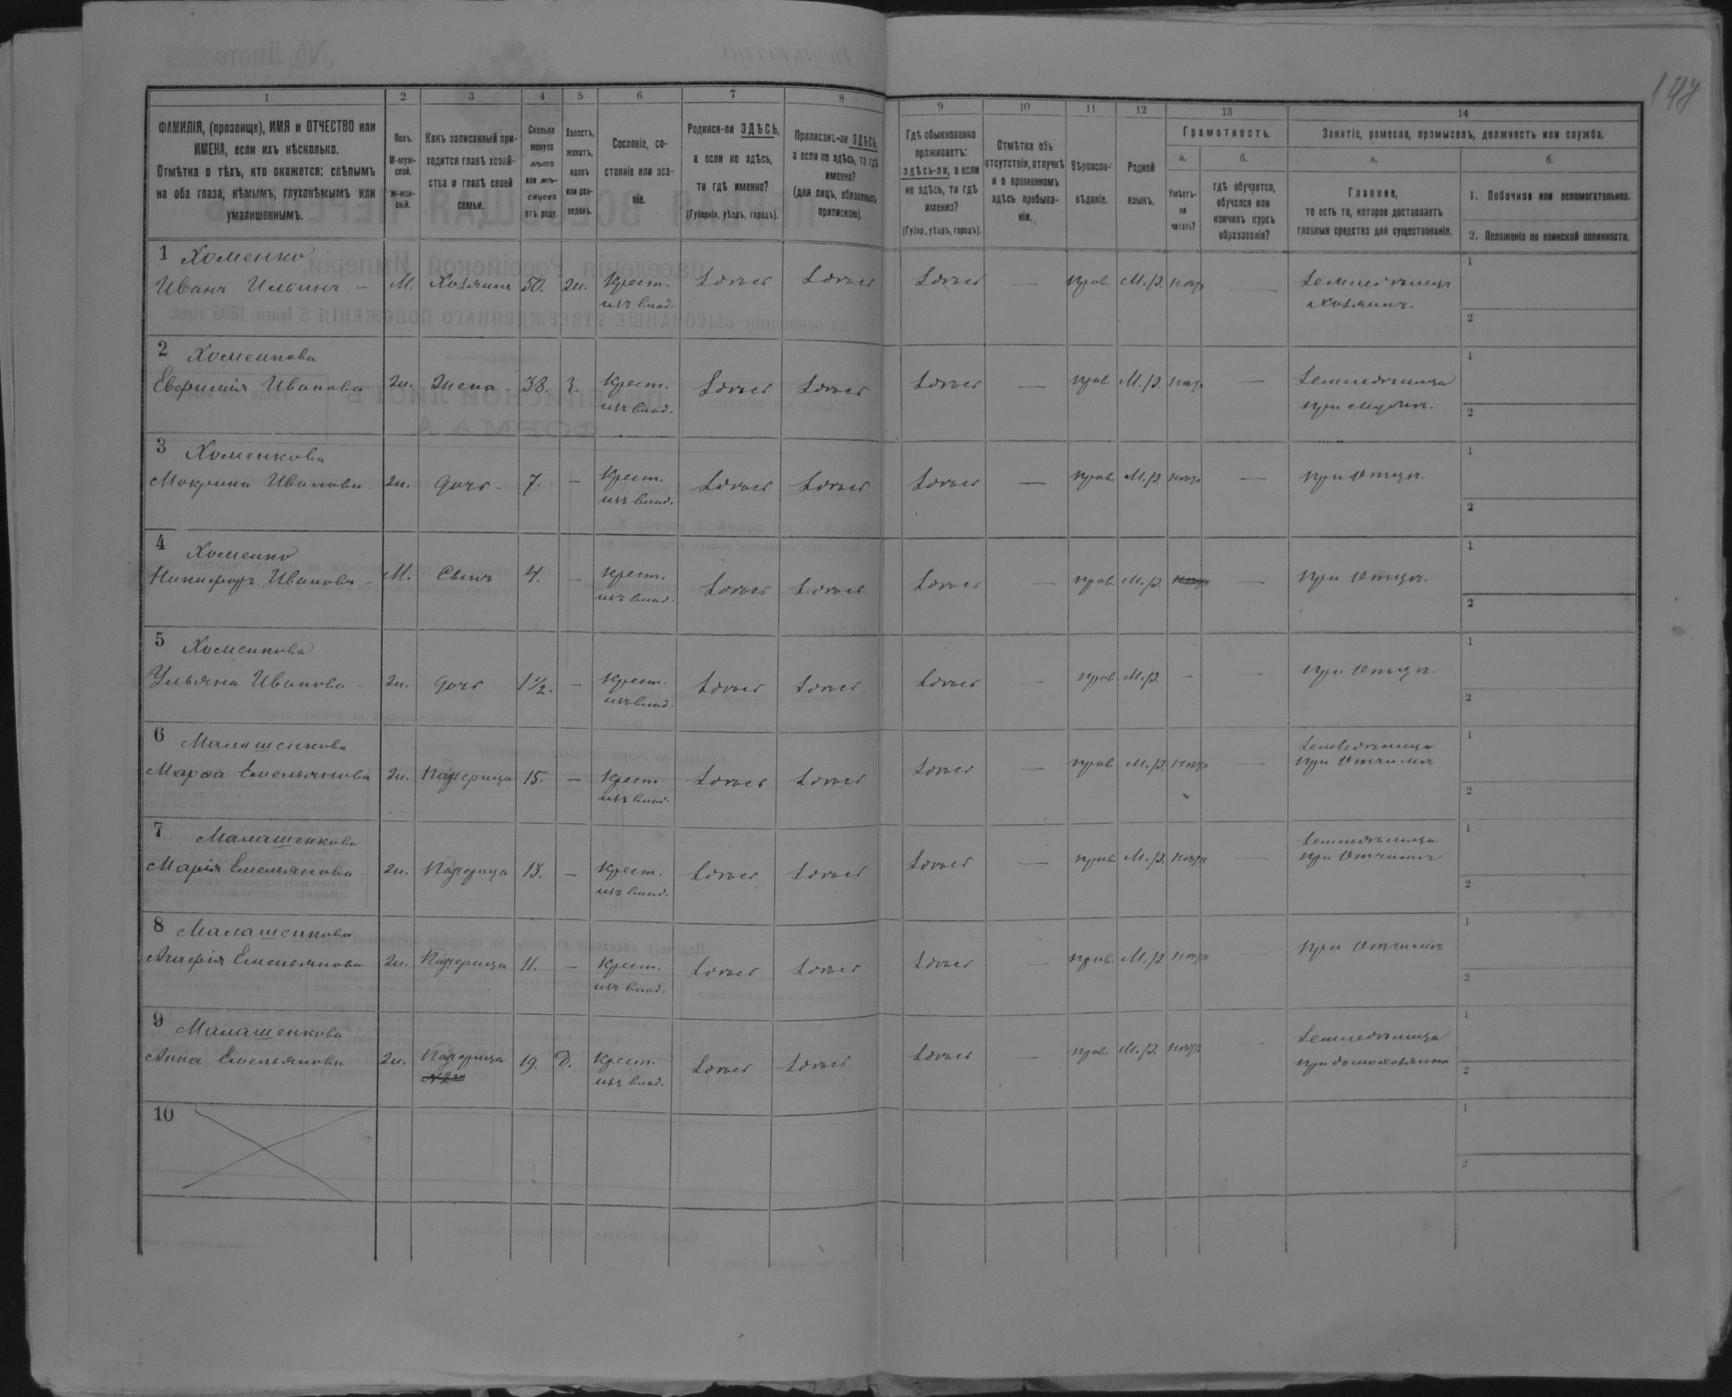 147
1 2 3 4 5 6 7 8 9 10 11 12 13 14
ФАМИЛІЯ, (прозвище), ИМЯ и ОТЧЕСТВО или
ИМЕНА, если ихъ нѣсколько.
Отмѣтка о тѣхъ, кто окажется: слѣпымъ
на оба глаза, нѣмымъ, глухонѣмымъ или
умалишеннымъ.
Полъ.
М-муж-
ской.
Ж-жен-
скій.
Какъ записанный при-
ходится главѣ хозяй-
ства и главѣ своей
семьи.
Сколько
минуло
лѣтъ
или мѣ-
сяцевъ
отъ роду.
Холостъ,
женатъ,
вдовъ
или раз-
веденъ.
Сословіе, со-
стояніе или зва-
ніе.
Родился-ли ЗДѢСЬ,
а если не здѣсь,
то гдѣ именно?
(Губернія, уѣздъ, городъ).
Приписанъ-ли ЗДѢСЬ,
а если не здѣсь, то гдѣ
именно?
(для лицъ, обязанныхъ
припискою).
Гдѣ обыкновенно
проживаетъ:
здѣсь-ли, а если
не здѣсь, то гдѣ
именно?
(Губер., уѣздъ, городъ).
Отмѣтка объ
отсутствіи, отлучкѣ
и о временномъ
здѣсь пребыва-
ніи.
Вѣроиспо-
вѣданіе.
Родной
языкъ.
Грамотность.
а.
Умѣетъ-
ли
читать?
б.
гдѣ обучается,
обучался или
кончилъ курсъ
образованія?
Занятіе, ремесло, промыселъ, должность или служба.
а.
Главное,
то есть то, которое доставляетъ
главныя средства для существованія.
б.
1. Побочное или вспомогательное.
2. Положеніе по воинской повинности.
1 Хоменко
Иванъ Ильинъ – М. Хозяинъ 50. Ж. Крест. Здѣсь Здѣсь Здѣсь — прав. М.р. нѣтъ — Земледѣлецъ
изъ влад. хозяинъ.
2 Хоменкова
Евфимія Иванова Ж. Жена 38. З. Крест. Здѣсь Здѣсь Здѣсь — прав. М.р. нѣтъ — Земледѣлица
изъ влад. при мужѣ.
3 Хоменкова
Мокрина Иванова Ж. дочь 7. – Крест. Здѣсь Здѣсь Здѣсь — прав. М.р. нѣтъ — при отцѣ.
изъ влад.
4 Хоменко
Никифоръ Ивановъ – М. Сынъ 4. – Крест. Здѣсь Здѣсь Здѣсь — прав. М.р. нѣтъ — при отцѣ.
изъ влад.
5 Хоменкова
Ульяна Иванова Ж. дочь 1½. – Крест. Здѣсь Здѣсь Здѣсь — прав. М.р. – — при отцѣ
изъ влад.
6 Малашенкова Земледѣлица
Марѳа Емельянова Ж. Падчерица 15. – Крест. Здѣсь Здѣсь Здѣсь — прав. М.р. нѣтъ — при отчимѣ
изъ влад.
7 Малашенкова Земледѣлица
Марія Емельянова Ж. Падчерица 13. – Крест. Здѣсь Здѣсь Здѣсь — прав. М.р. нѣтъ — при отчимѣ
изъ влад.
8 Малашенкова
Агафія Емельянова Ж. Падчерица 11. – Крест. Здѣсь Здѣсь Здѣсь — прав. М.р. нѣтъ — при отчимѣ
изъ влад.
9 Малашенкова Земледѣлица
Анна Емельянова Ж. Падчерица 19. Д. Крест. Здѣсь Здѣсь Здѣсь — прав. М.р. нѣтъ — при домохозяинѣ
изъ влад.
10